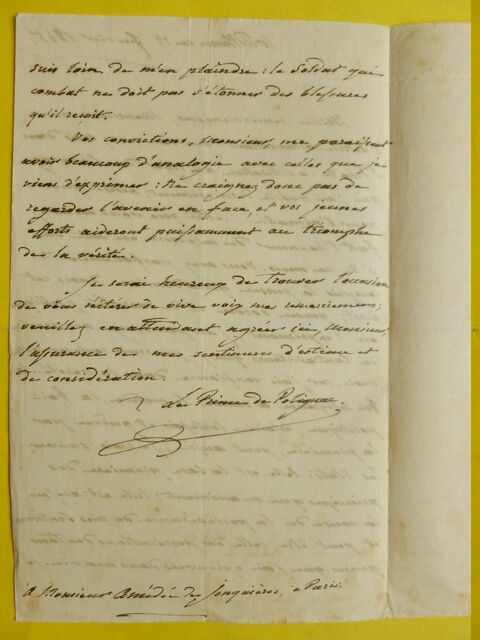 suis loin de m'en plaindre : le Soldat qui
combat ne doit pas s'étonner des blessures
qu'il reçoit.
Vos convictions, Monsieur, me paraissent
avoir beaucoup d'analogie avec celles que je
viens d'exprimer : Ne craignez donc pas de
regarder l'avenir en face, et vos jeunes
efforts aideront puissamment au triomphe
de la vérité.
Je serai heureux de trouver l'occasion
de vous réitérer de vive voix mes remerciemens;
veuillez, en attendant agréer ici, Monsieur,
l'assurance de mes sentimens d'estime et
de considération.
Le Prince de Polignac.
à Monsieur Amédée de Jonquières, à Paris.